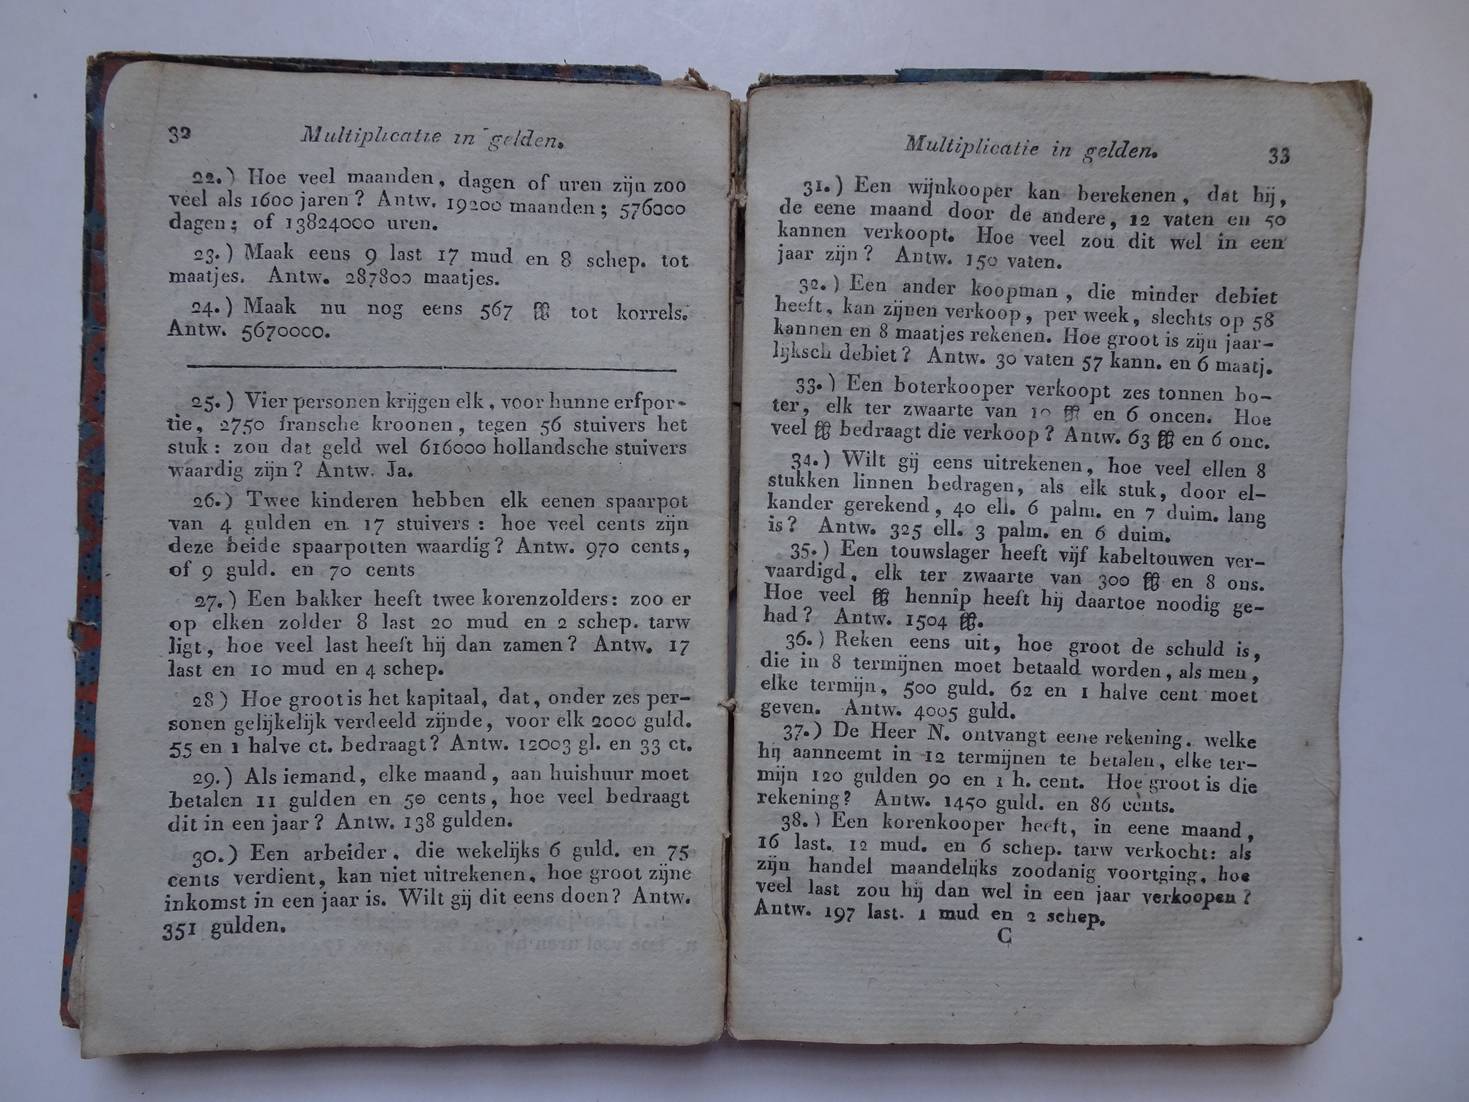 32 Multiplicatie in gelden.
22.) Hoe veel maanden, dagen of uren zijn zoo
veel als 1600 jaren? Antw. 19200 maanden; 576000
dagen; of 13824000 uren.
23.) Maak eens 9 last 17 mud en 8 schep. tot
maatjes. Antw. 287800 maatjes.
24.) Maak nu nog eens 567 ℔ tot korrels.
Antw. 5670000.
25.) Vier personen krijgen elk, voor hunne erfpor-
tie, 2750 fransche kroonen, tegen 56 stuivers het
stuk: zou dat geld wel 616000 hollandsche stuivers
waardig zijn? Antw. Ja.
26.) Twee kinderen hebben elk eenen spaarpot
van 4 gulden en 17 stuivers: hoe veel cents zijn
deze beide spaarpotten waardig? Antw. 970 cents,
of 9 guld. en 70 cents
27.) Een bakker heeft twee korenzolders: zoo er
op elken zolder 8 last 20 mud en 2 schep. tarw
ligt, hoe veel last heeft hij dan zamen? Antw. 17
last en 10 mud en 4 schep.
28) Hoe groot is het kapitaal, dat, onder zes per-
sonen gelijkelijk verdeeld zijnde, voor elk 2000 guld.
55 en 1 halve ct. bedraagt? Antw. 12003 gl. en 33 ct.
29.) Als iemand, elke maand, aan huishuur moet
betalen 11 gulden en 50 cents, hoe veel bedraagt
dit in een jaar? Antw. 138 gulden.
30.) Een arbeider, die wekelijks 6 guld. en 75
cents verdient, kan niet uitrekenen, hoe groot zijne
inkomst in een jaar is. Wilt gij dit eens doen? Antw.
351 gulden.
Multiplicatie in gelden. 33
31.) Een wijnkooper kan berekenen, dat hij,
de eene maand door de andere, 12 vaten en 50
kannen verkoopt. Hoe veel zou dit wel in een
jaar zijn? Antw. 150 vaten.
32.) Een ander koopman, die minder debiet
heeft, kan zijnen verkoop, per week, slechts op 58
kannen en 8 maatjes rekenen. Hoe groot is zijn jaar-
lijksch debiet? Antw. 30 vaten 57 kann. en 6 maatj.
33.) Een boterkooper verkoopt zes tonnen bo-
ter, elk ter zwaarte van 10 ℔ en 6 oncen. Hoe
veel ℔ bedraagt die verkoop? Antw. 63 ℔ en 6 onc.
34.) Wilt gij eens uitrekenen, hoe veel ellen 8
stukken linnen bedragen, als elk stuk, door el-
kander gerekend, 40 ell. 6 palm. en 7 duim. lang
is? Antw. 325 ell. 3 palm. en 6 duim.
35.) Een touwslager heeft vijf kabeltouwen ver-
vaardigd, elk ter zwaarte van 300 ℔ en 8 ons.
Hoe veel ℔ hennip heeft hij daartoe noodig ge-
had? Antw. 1504 ℔.
36.) Reken eens uit, hoe groot de schuld is,
die in 8 termijnen moet betaald worden, als men,
elke termijn, 500 guld. 62 en 1 halve cent moet
geven. Antw. 4005 guld.
37.) De Heer N. ontvangt eene rekening, welke
hij aanneemt in 12 termijnen te betalen, elke ter-
mijn 120 gulden 90 en 1 h. cent. Hoe groot is die
rekening? Antw. 1450 guld. en 86 cents.
38.) Een korenkooper heeft, in eene maand,
16 last. 12 mud. en 6 schep. tarw verkocht: als
zijn handel maandelijks zoodanig voortging, hoe
veel last zou hij dan wel in een jaar verkoopen?
Antw. 197 last. 1 mud en 2 schep.
C